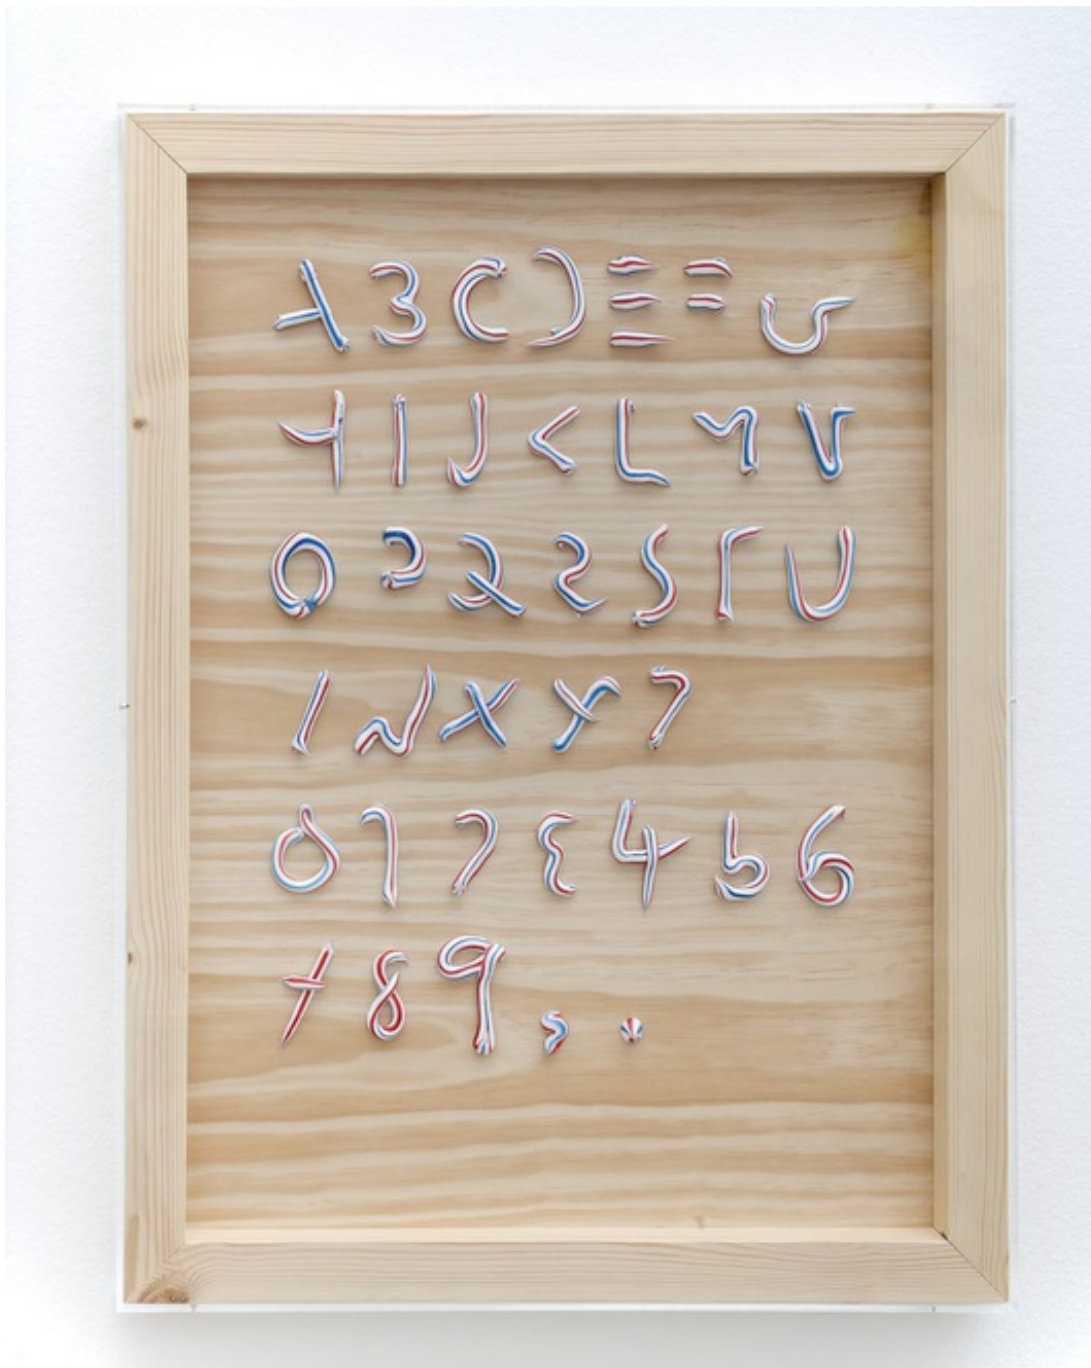 A B C D E F G
H I J K L M N
O P Q R S T U
V W X Y Z
0 1 2 3 4 5 6
7 8 9 , .